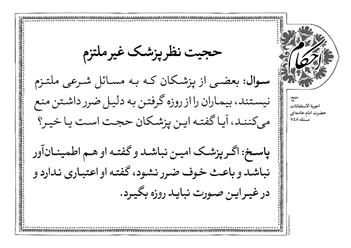 احکام
حجیت نظر پزشک غیر ملتزم
سوال: بعضی از پزشکان که به مسائل شرعی ملتزم
نیستند، بیماران را از روزه گرفتن به دلیل ضرر داشتن منع
می‌کنند، آیا گفته این پزشکان حجت است یا خیر؟
پاسخ: اگر پزشک امین نباشد و گفته او هم اطمینان‌آور
نباشد و باعث خوف ضرر نشود، گفته او اعتباری ندارد و
در غیر این صورت نباید روزه بگیرد.
منبع:
اجوبة الاستفتائات
حضرت امام خامنه‌ای
مسئله ۷۴۸